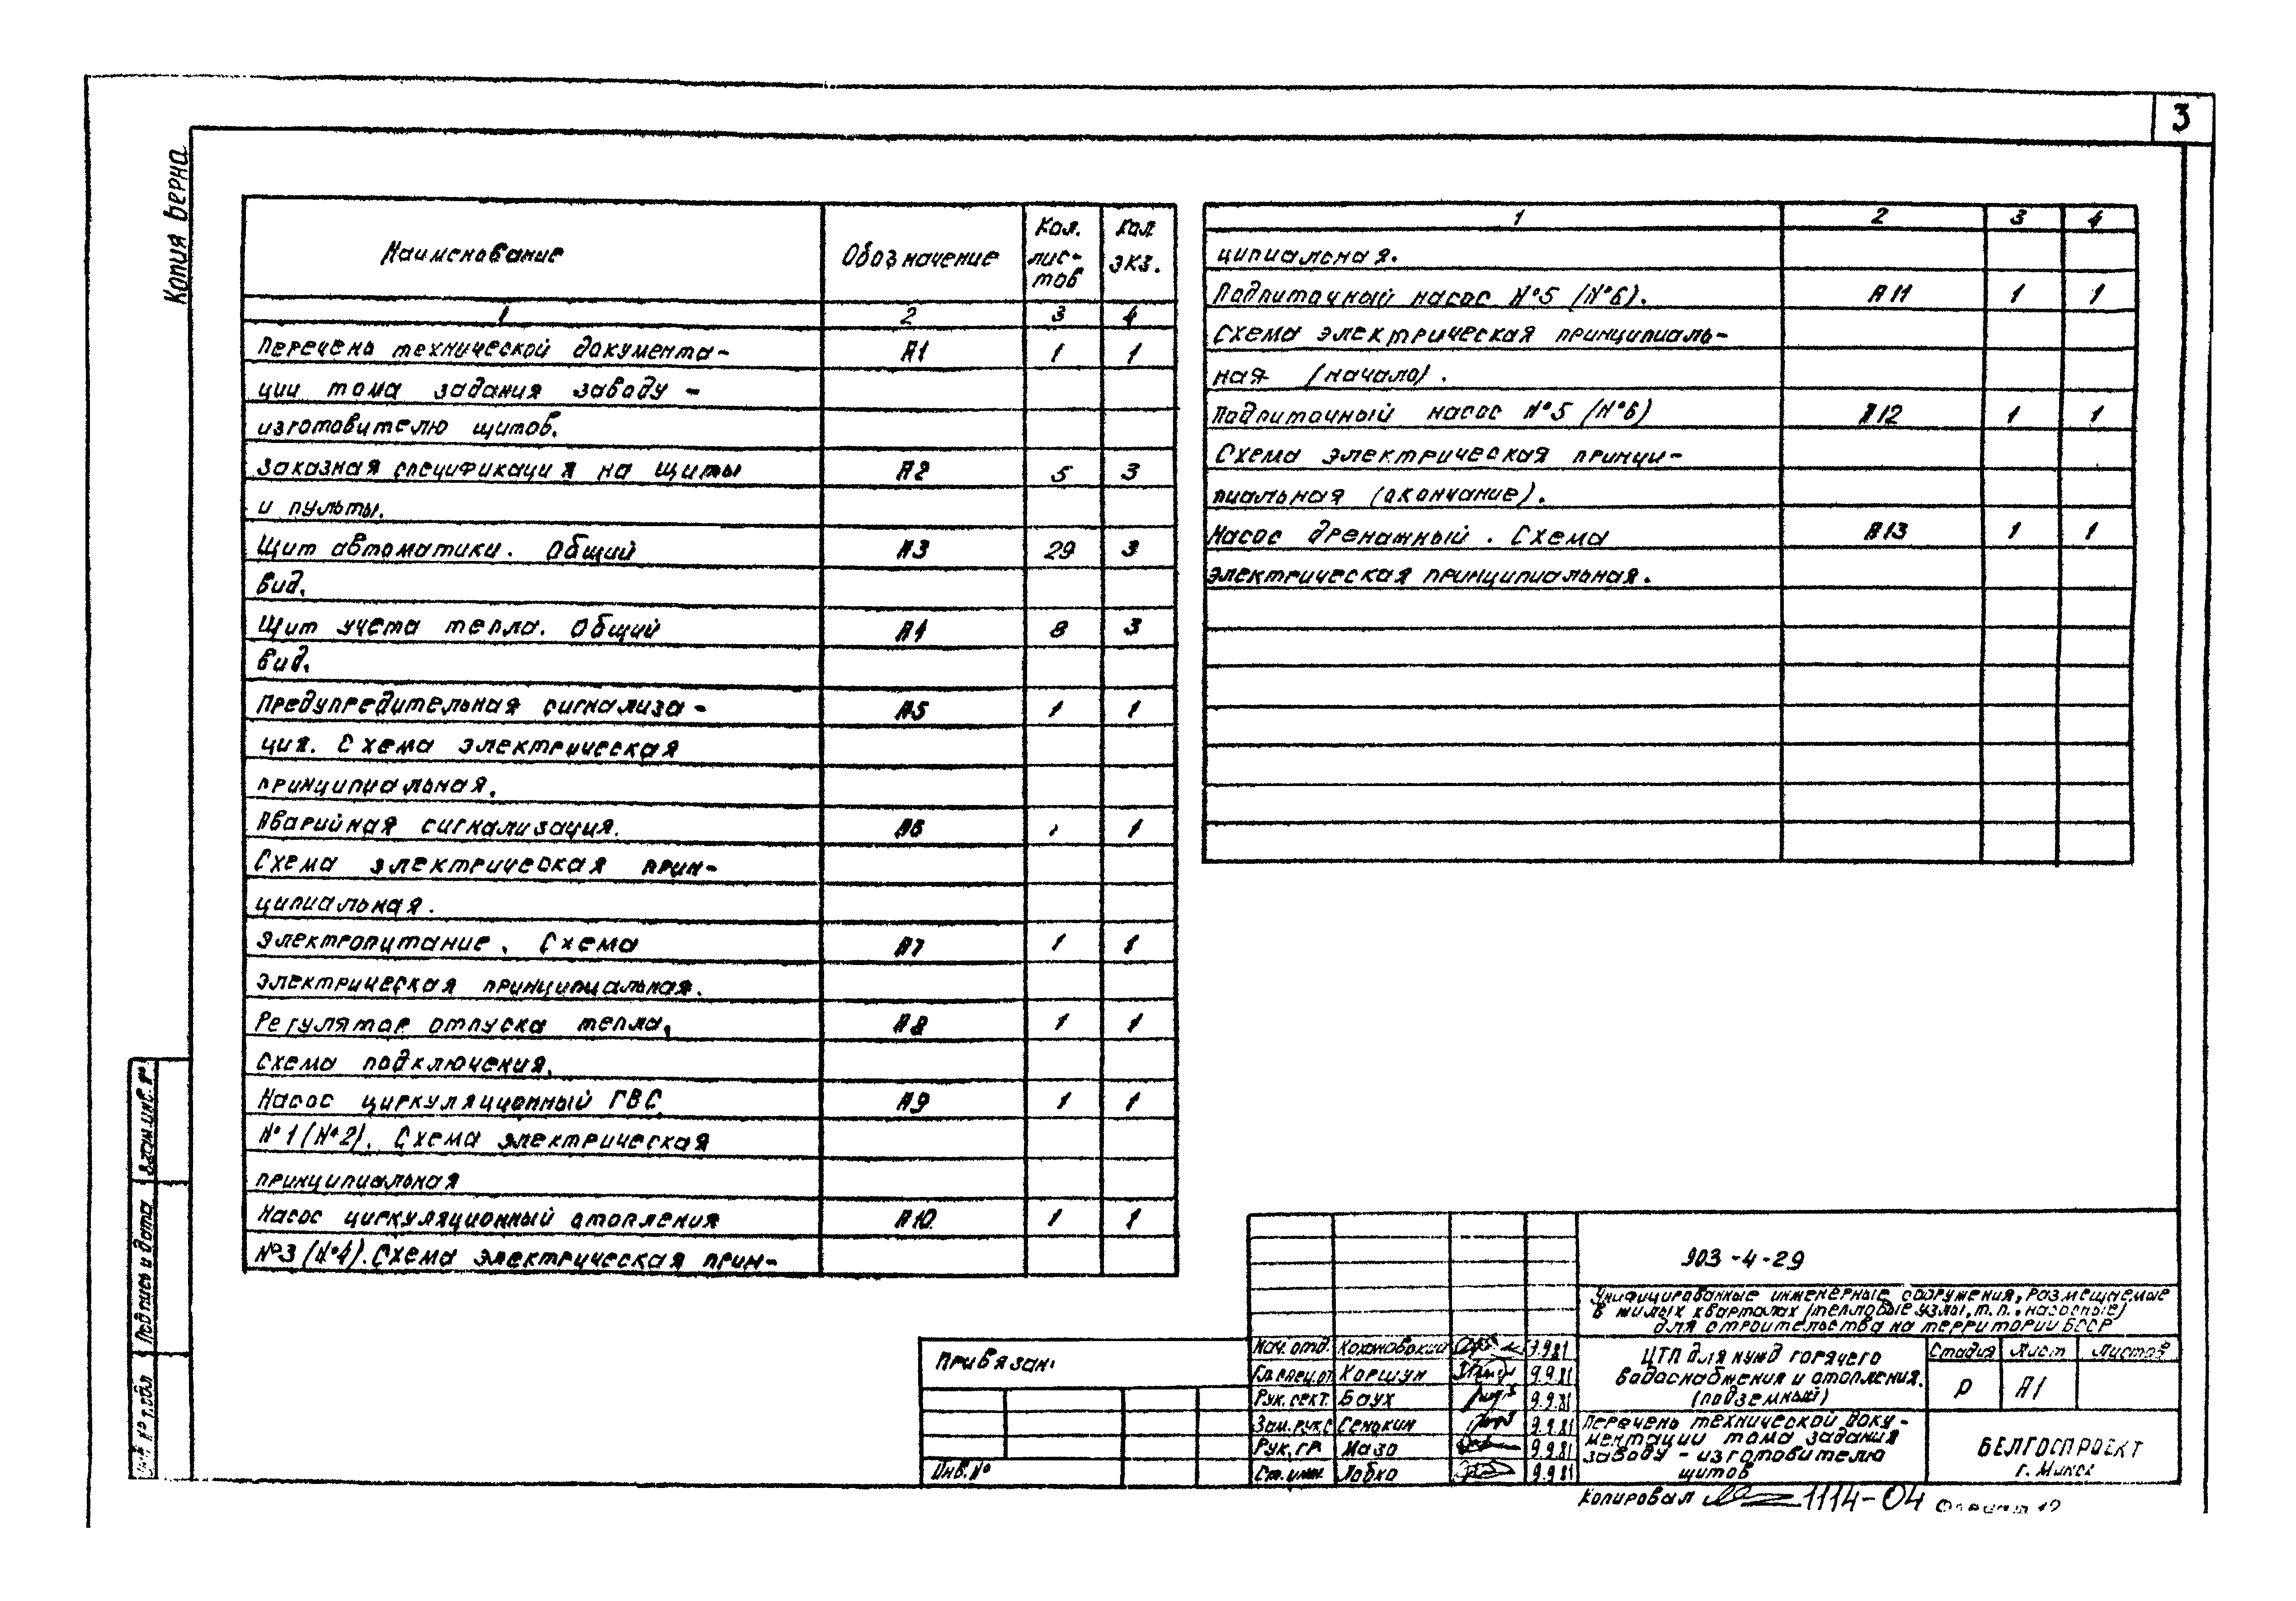 3
Копия верна
Наименование Обозначение Кол. лис- тов Кол экз.
1 2 3 4
Перечень технической документа- А1 1 1
ции тома задания заводу -
изготовителю щитов.
Заказная спецификация на щиты А2 5 3
и пульты.
Щит автоматики. Общий А3 29 3
вид.
Щит учета тепла. Общий А4 8 3
вид.
Предупредительная сигнализа- А5 1 1
ция. Схема электрическая
принципиальная.
Аварийная сигнализация. А6 1
Схема электрическая прин-
ципиальная.
Электропитание. Схема А7 1 1
электрическая принципиальная.
Регулятор отпуска тепла. А8 1 1
Схема подключения.
Насос циркуляционный ГВС А9 1 1
№1 (№2). Схема электрическая
принципиальная
Насос циркуляционный отопления А10 1 1
№3 (№4). Схема электрическая прин-
1 2 3 4
ципиальная.
Подпиточный насос №5 (№6). А11 1 1
Схема электрическая принципиаль-
ная (начало).
Подпиточный насос №5 (№6) А12 1 1
Схема электрическая принци-
пиальная (окончание).
Насос дренажный. Схема А13 1 1
электрическая принципиальная.
Взам. инв. №
Подпись и дата
Инв. № подл
Привязан:
Инв. №
903-4-29
Унифицированные инженерные сооружения, размещаемые
в жилых кварталах (тепловые узлы, т.п., насосные)
для строительства на территории БССР
Нач. отд. Кохановский 9.81
Гл. спец. от Коршун 9.9.81
Рук. сект. Баух 9.9.81
Зам. рук. с Сенькин 9.9.81
Рук. гр Мазо 9.9.81
Ст. инж. Лобко 9.9.81
ЦТП для нужд горячего
водоснабжения и отопления.
(подземный)
Стадия Лист Листов
Р А1
Перечень технической доку-
ментации тома задания
заводу - изготовителю
щитов
БЕЛГОСПРОЕКТ
г. Минск
Копировал 1114-04 Формат 12